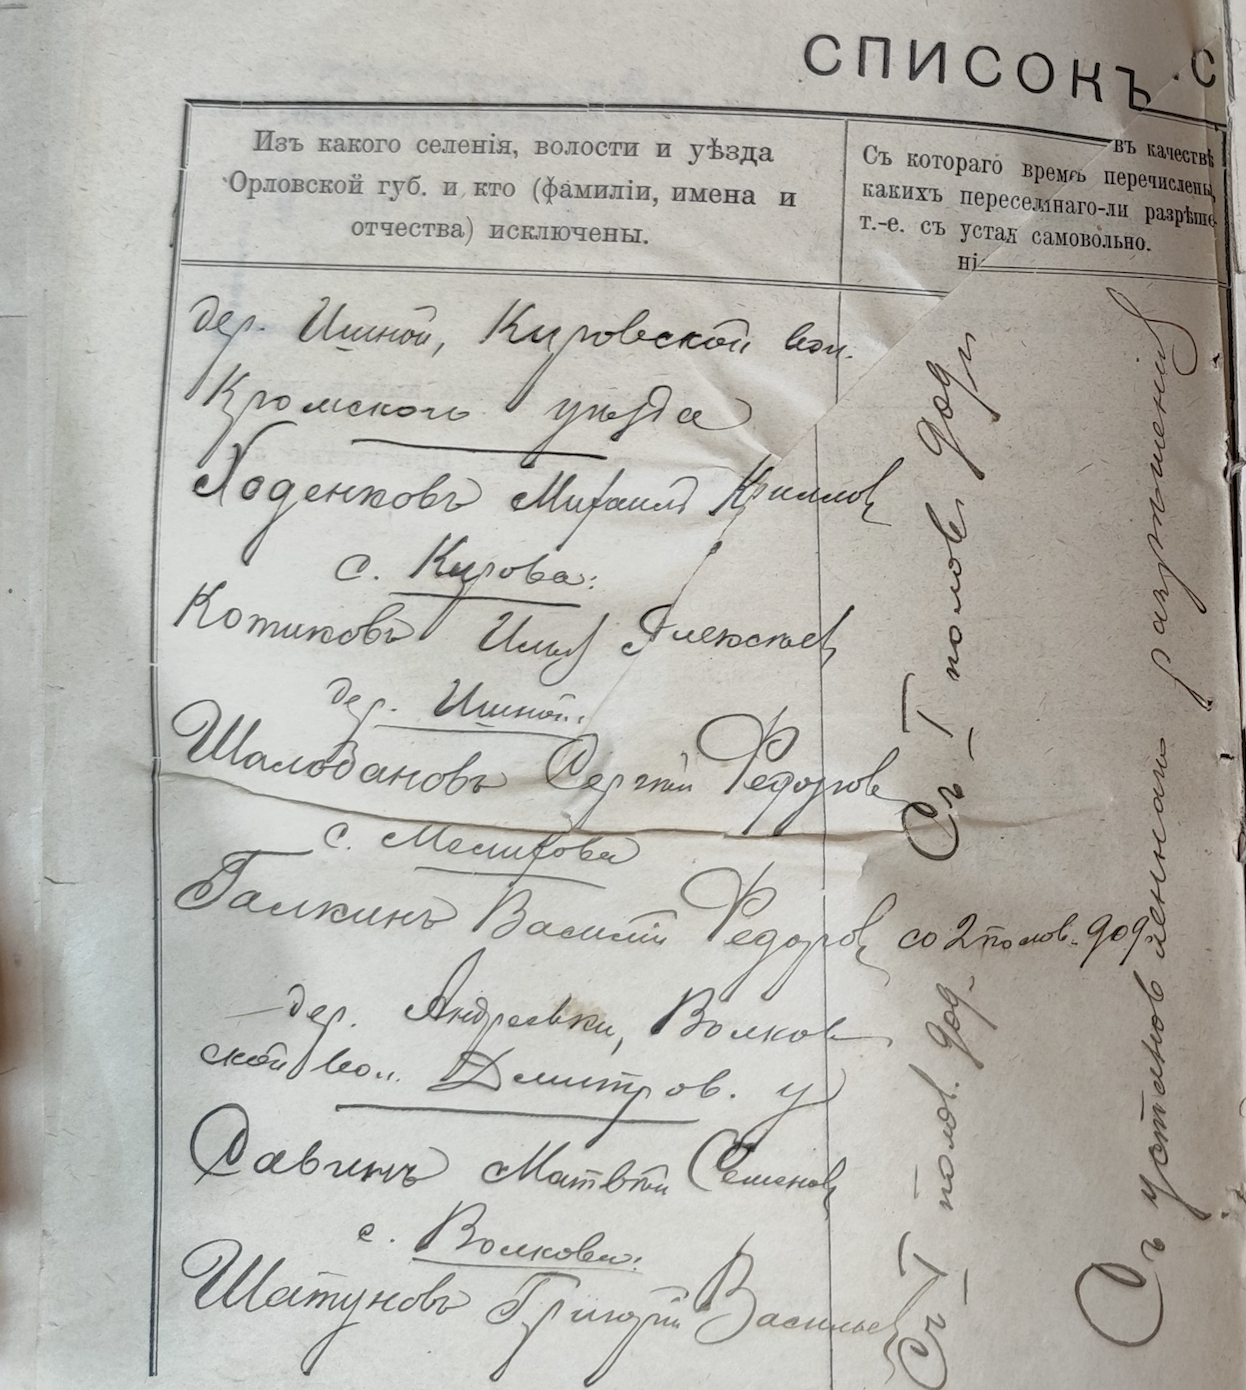 СПИСОКЪ С
Изъ какого селенія, волости и уѣзда
Орловской губ. и кто (фамиліи, имена и
отчества) исключены.
въ качествѣ
Съ котораго время перечислены,
какихъ переселннаго-ли разрѣше-
т.-е. съ устая самовольно.
ні
дер. Ишной, Кировской вол.
Кромского уѣзда
Ходенковъ Михаилъ Кирилловъ
с. Кирова:
Котиковъ Илья Алексѣев
дер. Ишной:
Шаловановъ Сергѣй Федоровъ
с. Мелихова
Галкинъ Василій Федоровъ со 2 полов. год
дер. Андреевки, Волков
ской вол. Дмитров. у
Савинъ Матвѣй Семеновъ
с. Волкова:
Шатуновъ Григорій Васильев
Съ I полов. года
Съ I полов. год.
Съ установленнаго разрѣшенія